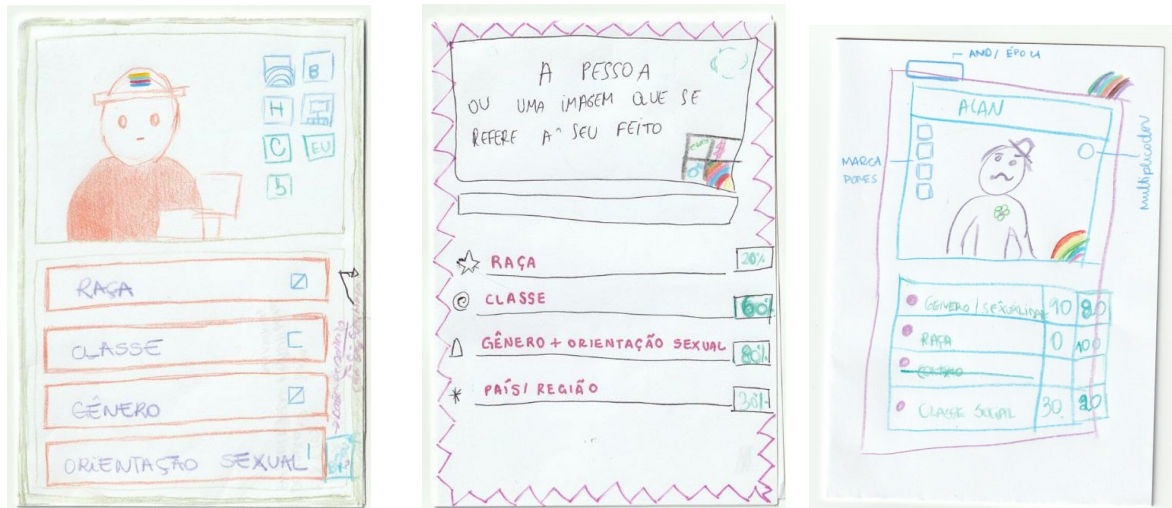 B
H
C
EU
5
RAÇA
CLASSE
GÊNERO
ORIENTAÇÃO SEXUAL
A PESSOA
OU UMA IMAGEM QUE SE
REFERE A^ SEU FEITO
RAÇA 20%
CLASSE 60%
GÊNERO + ORIENTAÇÃO SEXUAL 80%
PAÍS/ REGIÃO 30%
ANO/ ÉPOCA
ALAN
MARCA
multiplicador
GÊNERO/SEXUALIDADE 90 80
RAÇA 0 100
CLASSE SOCIAL 30 20